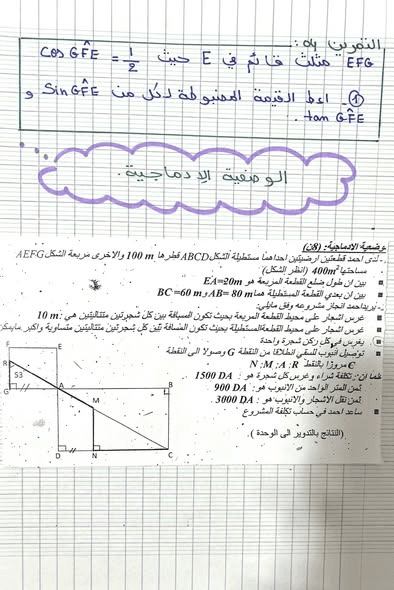 التمرين 04:
EFG مثلث قائم في E حيث cos GF̂E = 1/2
① _ اعط القيمة المضبوطة لكل من Sin GF̂E و
tan GF̂E .
الوضعية الإدماجية .
وضعية الادماجية: (8ن)
- لدى احمد قطعتين ارضيتين احداهما مستطيلة الشكل ABCD قطرها 100 m والاخرى مربعة الشكل AEFG
مساحتها 400m² (انظر الشكل)
بين ان طول ضلع القطعة المربعة هو EA=20m
بين ان بعدي القطعة المستطيلة هما AB= 80 m و BC =60 m
- يريد احمد انجاز مشروعه وفق مايلي:
غرس اشجار على محيط القطعة المربعة بحيث تكون المسافة بين كل شجرتين متتاليتين هي: 10 m
غرس اشجار على محيط القطعة المستطيلة بحيث تكون المسافة بين كل شجرتين متتاليتين متساوية واكبر مايمكن
يغرس في كل ركن شجرة واحدة
توصيل انبوب للسقي انطلاقا من النقطة G وصولا الى النقطة
C مرورا بالنقط N ;M ;A ;R
علما ان: تكلفة شراء وغرس كل شجرة هو : 1500 DA
ثمن المتر الواحد من الانبوب هو : 900 DA
ثمن نقل الاشجار والانبوب هو : 3000 DA
ساعد احمد في حساب تكلفة المشروع
(النتائج بالتدوير الى الوحدة ).
F E
R
53
G A B
M
D N C